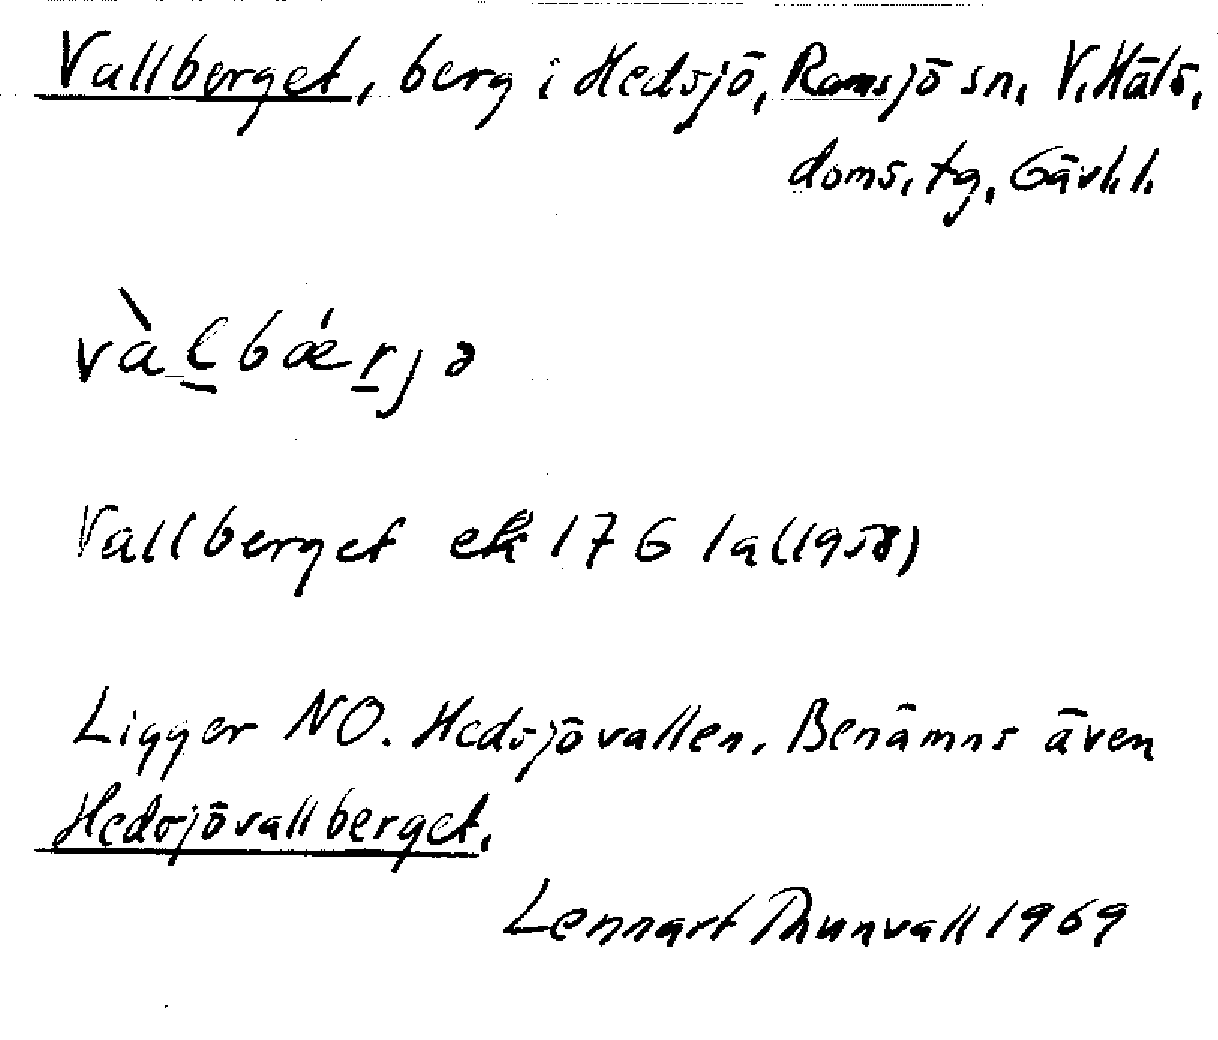 Vallberget, berg i Hedsjö, Ramsjö sn, V. Häls.
doms. tg, Gävl. l.
vàl̲bǽr̲jə
Vallberget ek 17 G 1a (1958)
Ligger NO. Hedsjövallen. Benämns även
Hedsjövallberget.
Lennart Thunvall 1969